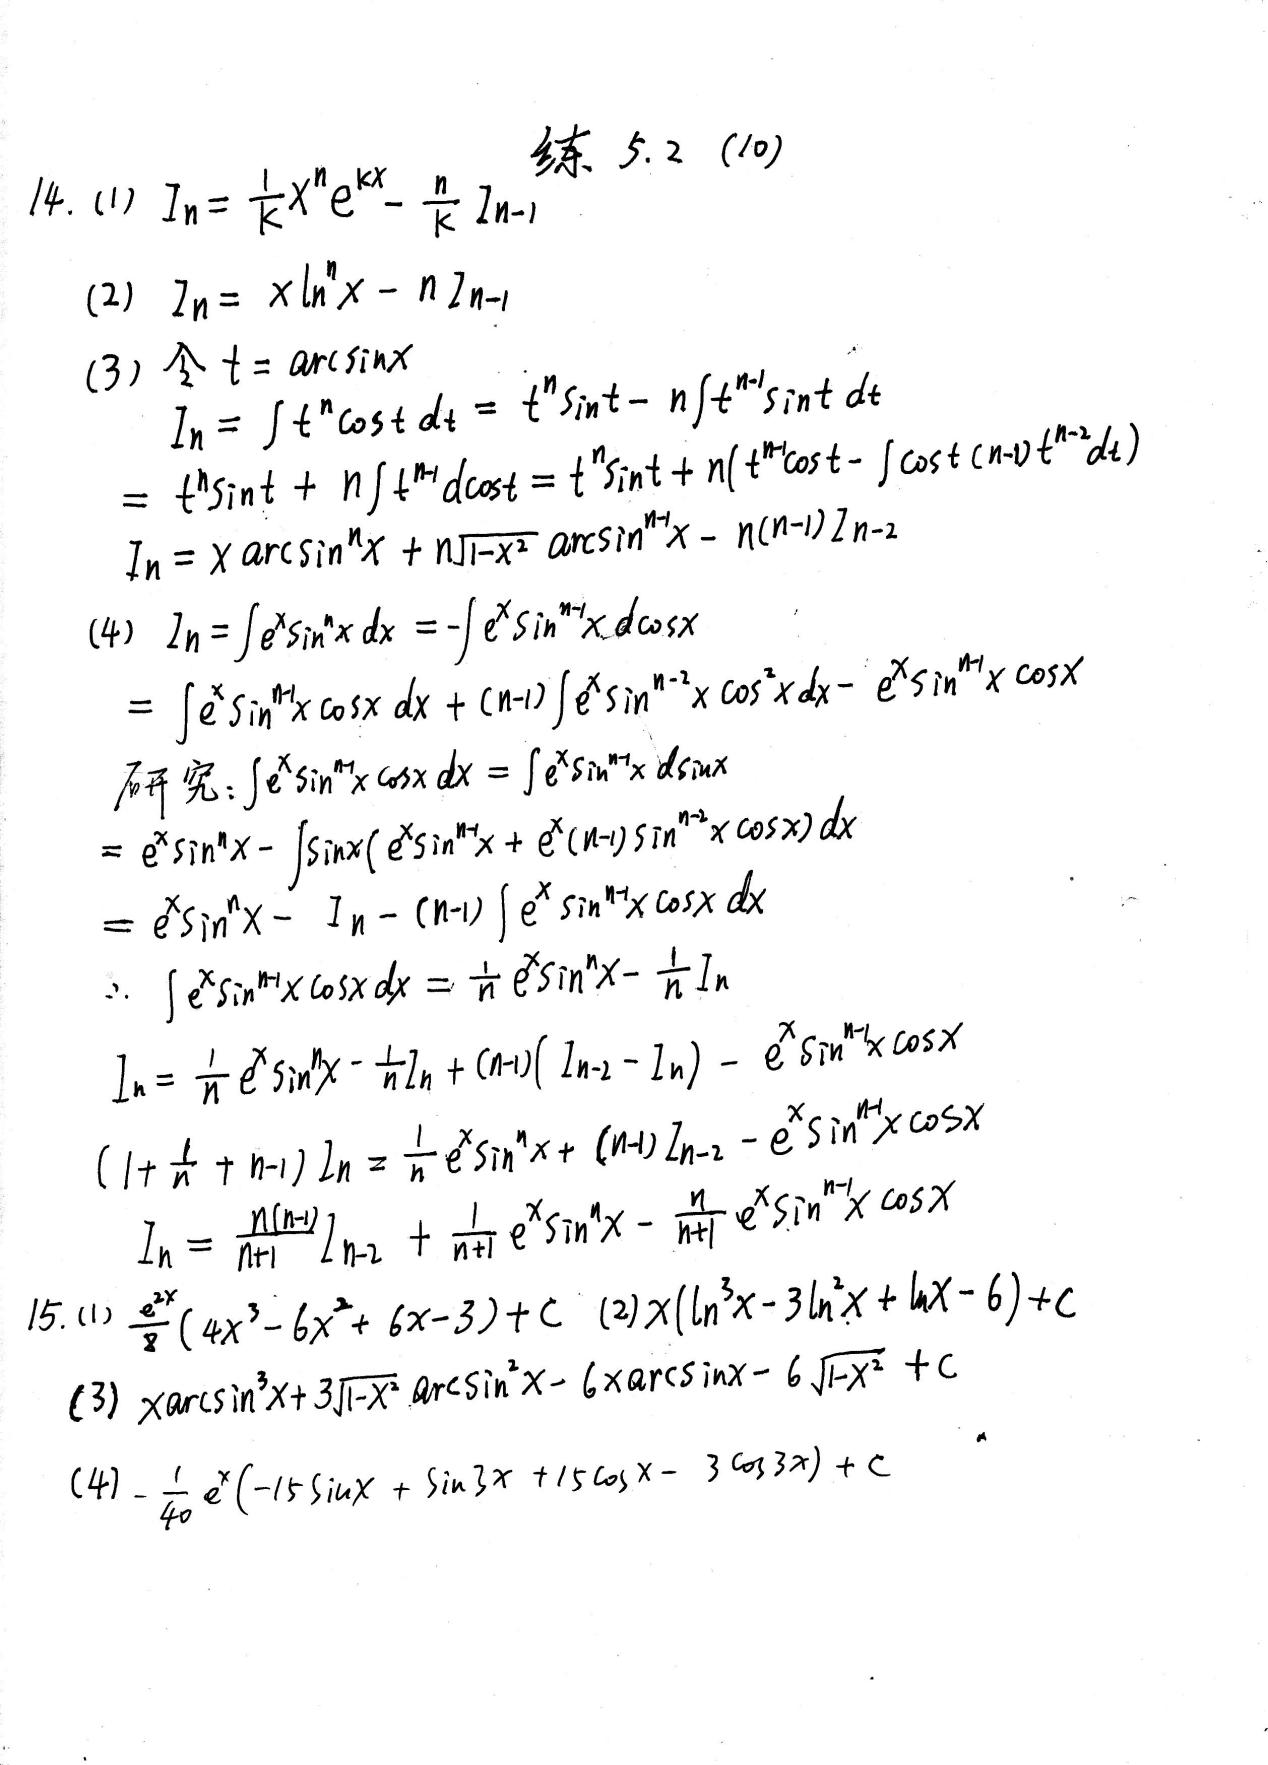 练 5.2 (10)
14. (1) Iₙ = 1/k xⁿe^(kx) - n/k Iₙ₋₁
(2) Iₙ = x lnⁿx - n Iₙ₋₁
(3) 令 t = arcsinx
Iₙ = ∫tⁿcost dt = tⁿsint - n∫tⁿ⁻¹sint dt
= tⁿsint + n∫tⁿ⁻¹dcost = tⁿsint + n(tⁿ⁻¹cost - ∫cost(n-1)tⁿ⁻²dt)
Iₙ = x arcsinⁿx + n√(1-x²) arcsinⁿ⁻¹x - n(n-1)Iₙ₋₂
(4) Iₙ = ∫eˣsinⁿx dx = -∫eˣsinⁿ⁻¹x dcosx
= ∫eˣsinⁿ⁻¹x cosx dx + (n-1)∫eˣsinⁿ⁻²x cos²x dx - eˣsinⁿ⁻¹x cosx
研究: ∫eˣsinⁿ⁻¹x cosx dx = ∫eˣsinⁿ⁻¹x dsinx
= eˣsinⁿx - ∫sinx(eˣsinⁿ⁻¹x + eˣ(n-1)sinⁿ⁻²x cosx)dx
= eˣsinⁿx - Iₙ - (n-1)∫eˣ sinⁿ⁻¹x cosx dx
∴ ∫eˣsinⁿ⁻¹x cosx dx = 1/n eˣsinⁿx - 1/n Iₙ
Iₙ = 1/n eˣsinⁿx - 1/n Iₙ + (n-1)(Iₙ₋₂ - Iₙ) - eˣsinⁿ⁻¹x cosx
(1 + 1/n + n-1)Iₙ = 1/n eˣsinⁿx + (n-1)Iₙ₋₂ - eˣsinⁿ⁻¹x cosx
Iₙ = n(n-1)/n+1 Iₙ₋₂ + 1/n+1 eˣsinⁿx - n/n+1 eˣsinⁿ⁻¹x cosx
15. (1) e^(2x)/8 (4x³ - 6x² + 6x - 3) + C (2) x(ln³x - 3ln²x + lnx - 6) + C
(3) xarcsin³x + 3√(1-x²) arcsin²x - 6xarcsinx - 6√(1-x²) + C
(4) - 1/40 eˣ(-15 sinx + sin3x + 15cosx - 3cos3x) + C